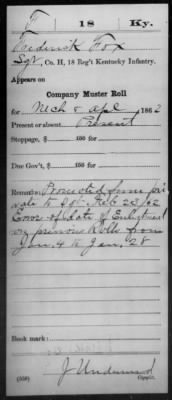 F 18 Ky.
Frederick Fox
Sgt, Co. H, 18 Reg't Kentucky Infantry.
Appears on
Company Muster Roll
for Mch & Apl, 1862
Present or absent Present
Stoppage, $ 100 for
Due Gov't, $ 100 for
Remarks: Promoted from pri
vate to Sgt. Feb 23/62
Error of date of Enlistment
on previous Rolls from
Jan. 4 to Jan. 28
Book mark:
J Underwood
(358) Copyist.